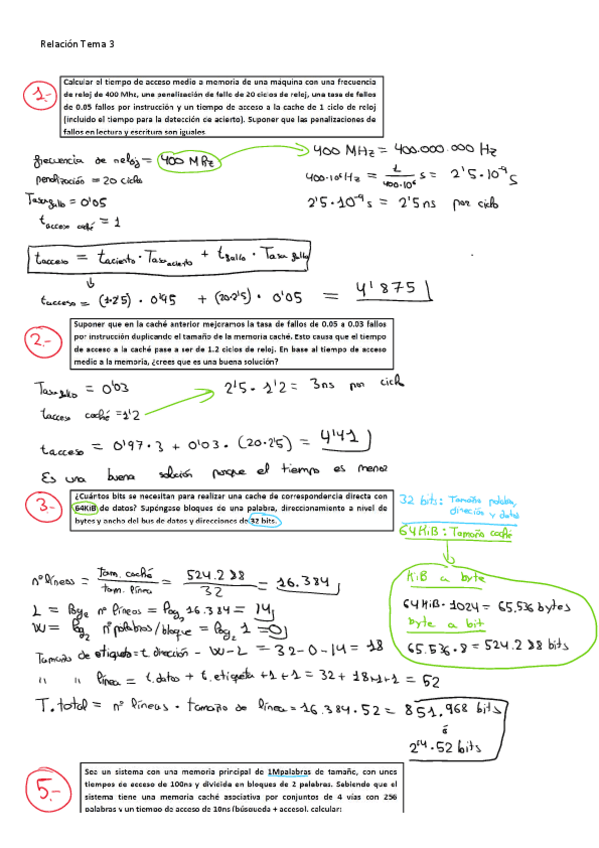 Relación Tema 3
1.-
Calcular el tiempo de acceso medio a memoria de una máquina con una frecuencia
de reloj de 400 Mhz, una penalización de fallo de 20 ciclos de reloj, una tasa de fallos
de 0.05 fallos por instrucción y un tiempo de acceso a la cache de 1 ciclo de reloj
(incluido el tiempo para la detección de acierto). Suponer que las penalizaciones de
fallos en lectura y escritura son iguales
frecuencia de reloj = 400 MHz
400 MHz = 400.000.000 Hz
penalización = 20 ciclos
400·10⁶ Hz = 1/400·10⁶ s = 2'5·10⁻⁹ s
Tasa fallo = 0'05
2'5·10⁻⁹ s = 2'5 ns por ciclo
t acceso caché = 1
t acceso = t acierto · Tasa acierto + t fallo · Tasa fallo
t acceso = (1·2'5) · 0'95 + (20·2'5) · 0'05 = 4'875
2.-
Suponer que en la caché anterior mejoramos la tasa de fallos de 0.05 a 0.03 fallos
por instrucción duplicando el tamaño de la memoria caché. Esto causa que el tiempo
de acceso a la caché pase a ser de 1.2 ciclos de reloj. En base al tiempo de acceso
medio a la memoria, ¿crees que es una buena solución?
Tasa fallo = 0'03
2'5 · 1'2 = 3ns por ciclo
t acceso caché = 1'2
t acceso = 0'97 · 3 + 0'03 · (20·2'5) = 4'41
Es una buena solución porque el tiempo es menor
3.-
¿Cuántos bits se necesitan para realizar una cache de correspondencia directa con
64KiB de datos? Supóngase bloques de una palabra, direccionamiento a nivel de
bytes y ancho del bus de datos y direcciones de 32 bits.
32 bits: Tamaño palabra,
dirección y datos
64KiB: Tamaño caché
nº líneas = Tam. caché / tam. línea = 524.288 / 32 = 16.384
KiB a byte
64 KiB · 1024 = 65.536 bytes
byte a bit
65.536 · 8 = 524.288 bits
L = log₂ nº líneas = log₂ 16.384 = 14
W = log₂ nº palabras/bloque = log₂ 1 = 0
Tamaño de etiqueta = t. dirección - W - L = 32-0-14 = 18
" " línea = t. datos + t. etiqueta + 1 + 1 = 32 + 18+1+1 = 52
T. total = nº líneas · tamaño de línea = 16.384 · 52 = 851.968 bits
ó
2¹⁴ · 52 bits
5.-
Sea un sistema con una memoria principal de 1Mpalabras de tamaño, con unos
tiempos de acceso de 100ns y dividida en bloques de 2 palabras. Sabiendo que el
sistema tiene una memoria caché asociativa por conjuntos de 4 vías con 256
palabras y un tiempo de acceso de 10ns (búsqueda + acceso), calcular: